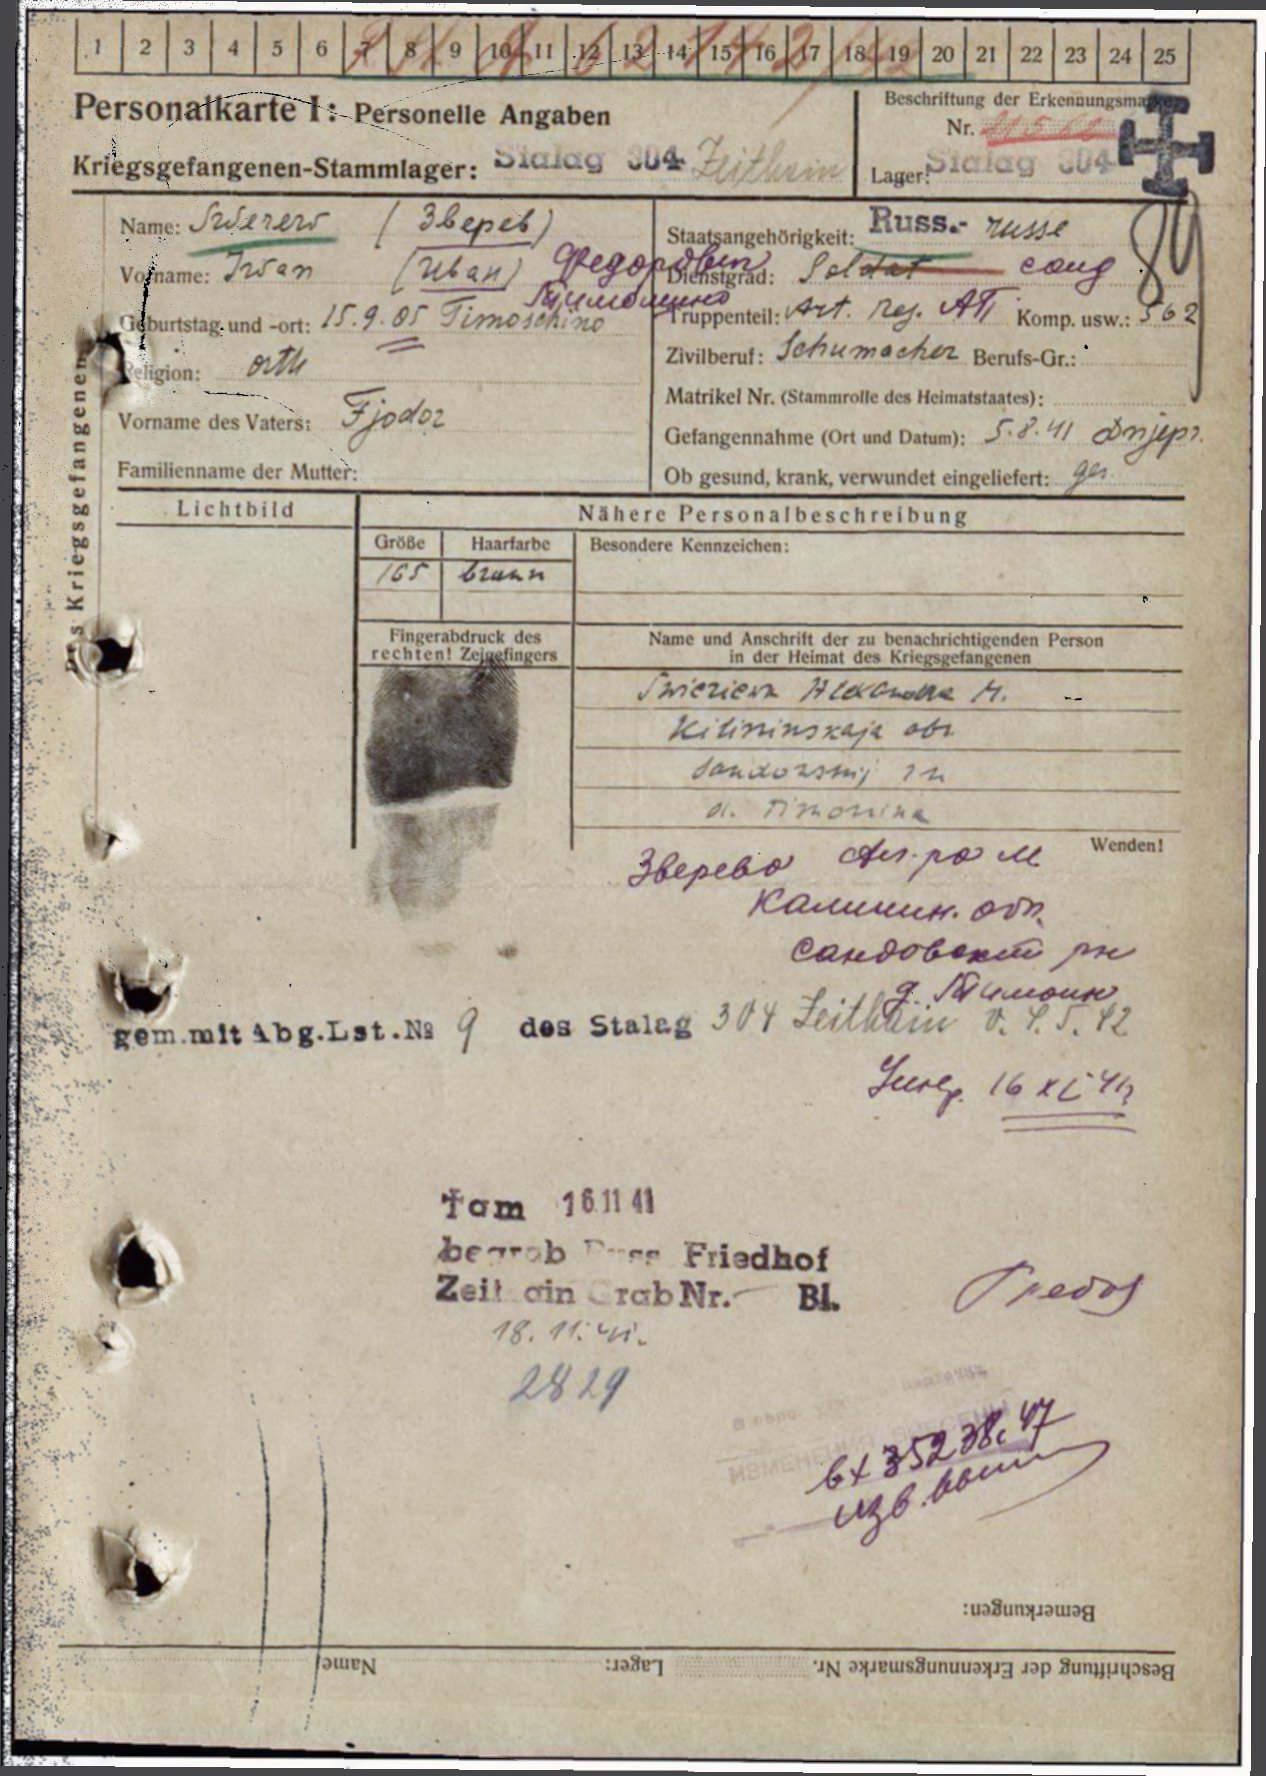 1 2 3 4 5 6 7 8 9 10 11 12 13 14 15 16 17 18 19 20 21 22 23 24 25
Personalkarte I: Personelle Angaben
Beschriftung der Erkennungsmarke
Nr.
Kriegsgefangenen-Stammlager: Stalag 304 Zeithain
Lager: Stalag 304
Des Kriegsgefangenen
Name: (Зверев)
Vorname: Iwan (Иван) Федорович
Тимошино
Geburtstag und -ort: 15.9.05 Timoschino
Religion: orth
Vorname des Vaters: Fjodor
Familienname der Mutter:
Staatsangehörigkeit: Russ.- russe
Dienstgrad: Soldat солд
Truppenteil: Art. reg. АП Komp. usw.: 562
Zivilberuf: Schumacher Berufs-Gr.:
Matrikel Nr. (Stammrolle des Heimatstaates):
Gefangennahme (Ort und Datum): 5.8.41 Dnjepr.
Ob gesund, krank, verwundet eingeliefert: ges.
89
Lichtbild
Nähere Personalbeschreibung
Größe Haarfarbe Besondere Kennzeichen:
165 braun
Fingerabdruck des
rechten! Zeigefingers
Name und Anschrift der zu benachrichtigenden Person
in der Heimat des Kriegsgefangenen
Alexandra M.
Wenden!
Зверева Ал-ра М
Калинин. обл.
Сандовский рн
д. Тимошин
gem. mit Abg.Lst.№ 9 des Stalag 304 Zeithain v. 4.5.42
Умер. 16 XI 41
† am 16 11 41
begrab Russ Friedhof
Zeithain Grab Nr. Bl.
18.11.41.
2829
вх 35238с 47
изв.
Bemerkungen:
Beschriftung der Erkennungsmarke Nr. Lager: Name: